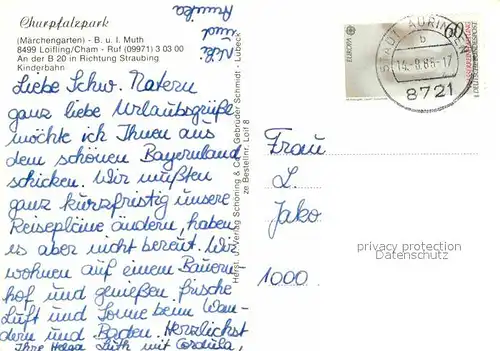 Churpfalzpark
(Märchengarten) - B. u. I. Muth
8499 Loifling/Cham - Ruf (09971) 3 03 00
An der B 20 in Richtung Straubing
Kinderbahn
Liebe Schw. Natern
ganz liebe Urlaubsgrüße
möchte ich Ihnen aus
dem schönen Bayernland
schicken. Wir mußten
ganz kurzfristig unsere
Reisepläne ändern, haben
es aber nicht bereut. Wir
wohnen auf einem Bauern
hof und genießen frische
Luft und Sonne beim Wan-
dern und Baden. Herzlichst
Ihre Helga Lüth mit Cordula,
Nele
und
Annika
Herst. u. Verlag Schöning & Co + Gebrüder Schmidt - Lübeck
ze Bestellnr. Loif 8
EUROPA
60
DEUTSCHE BUNDESPOST
STADTLAURINGEN
b
14.-8.86-17
8721
Frau
L.
Jako
privacy protection
Datenschutz
1000